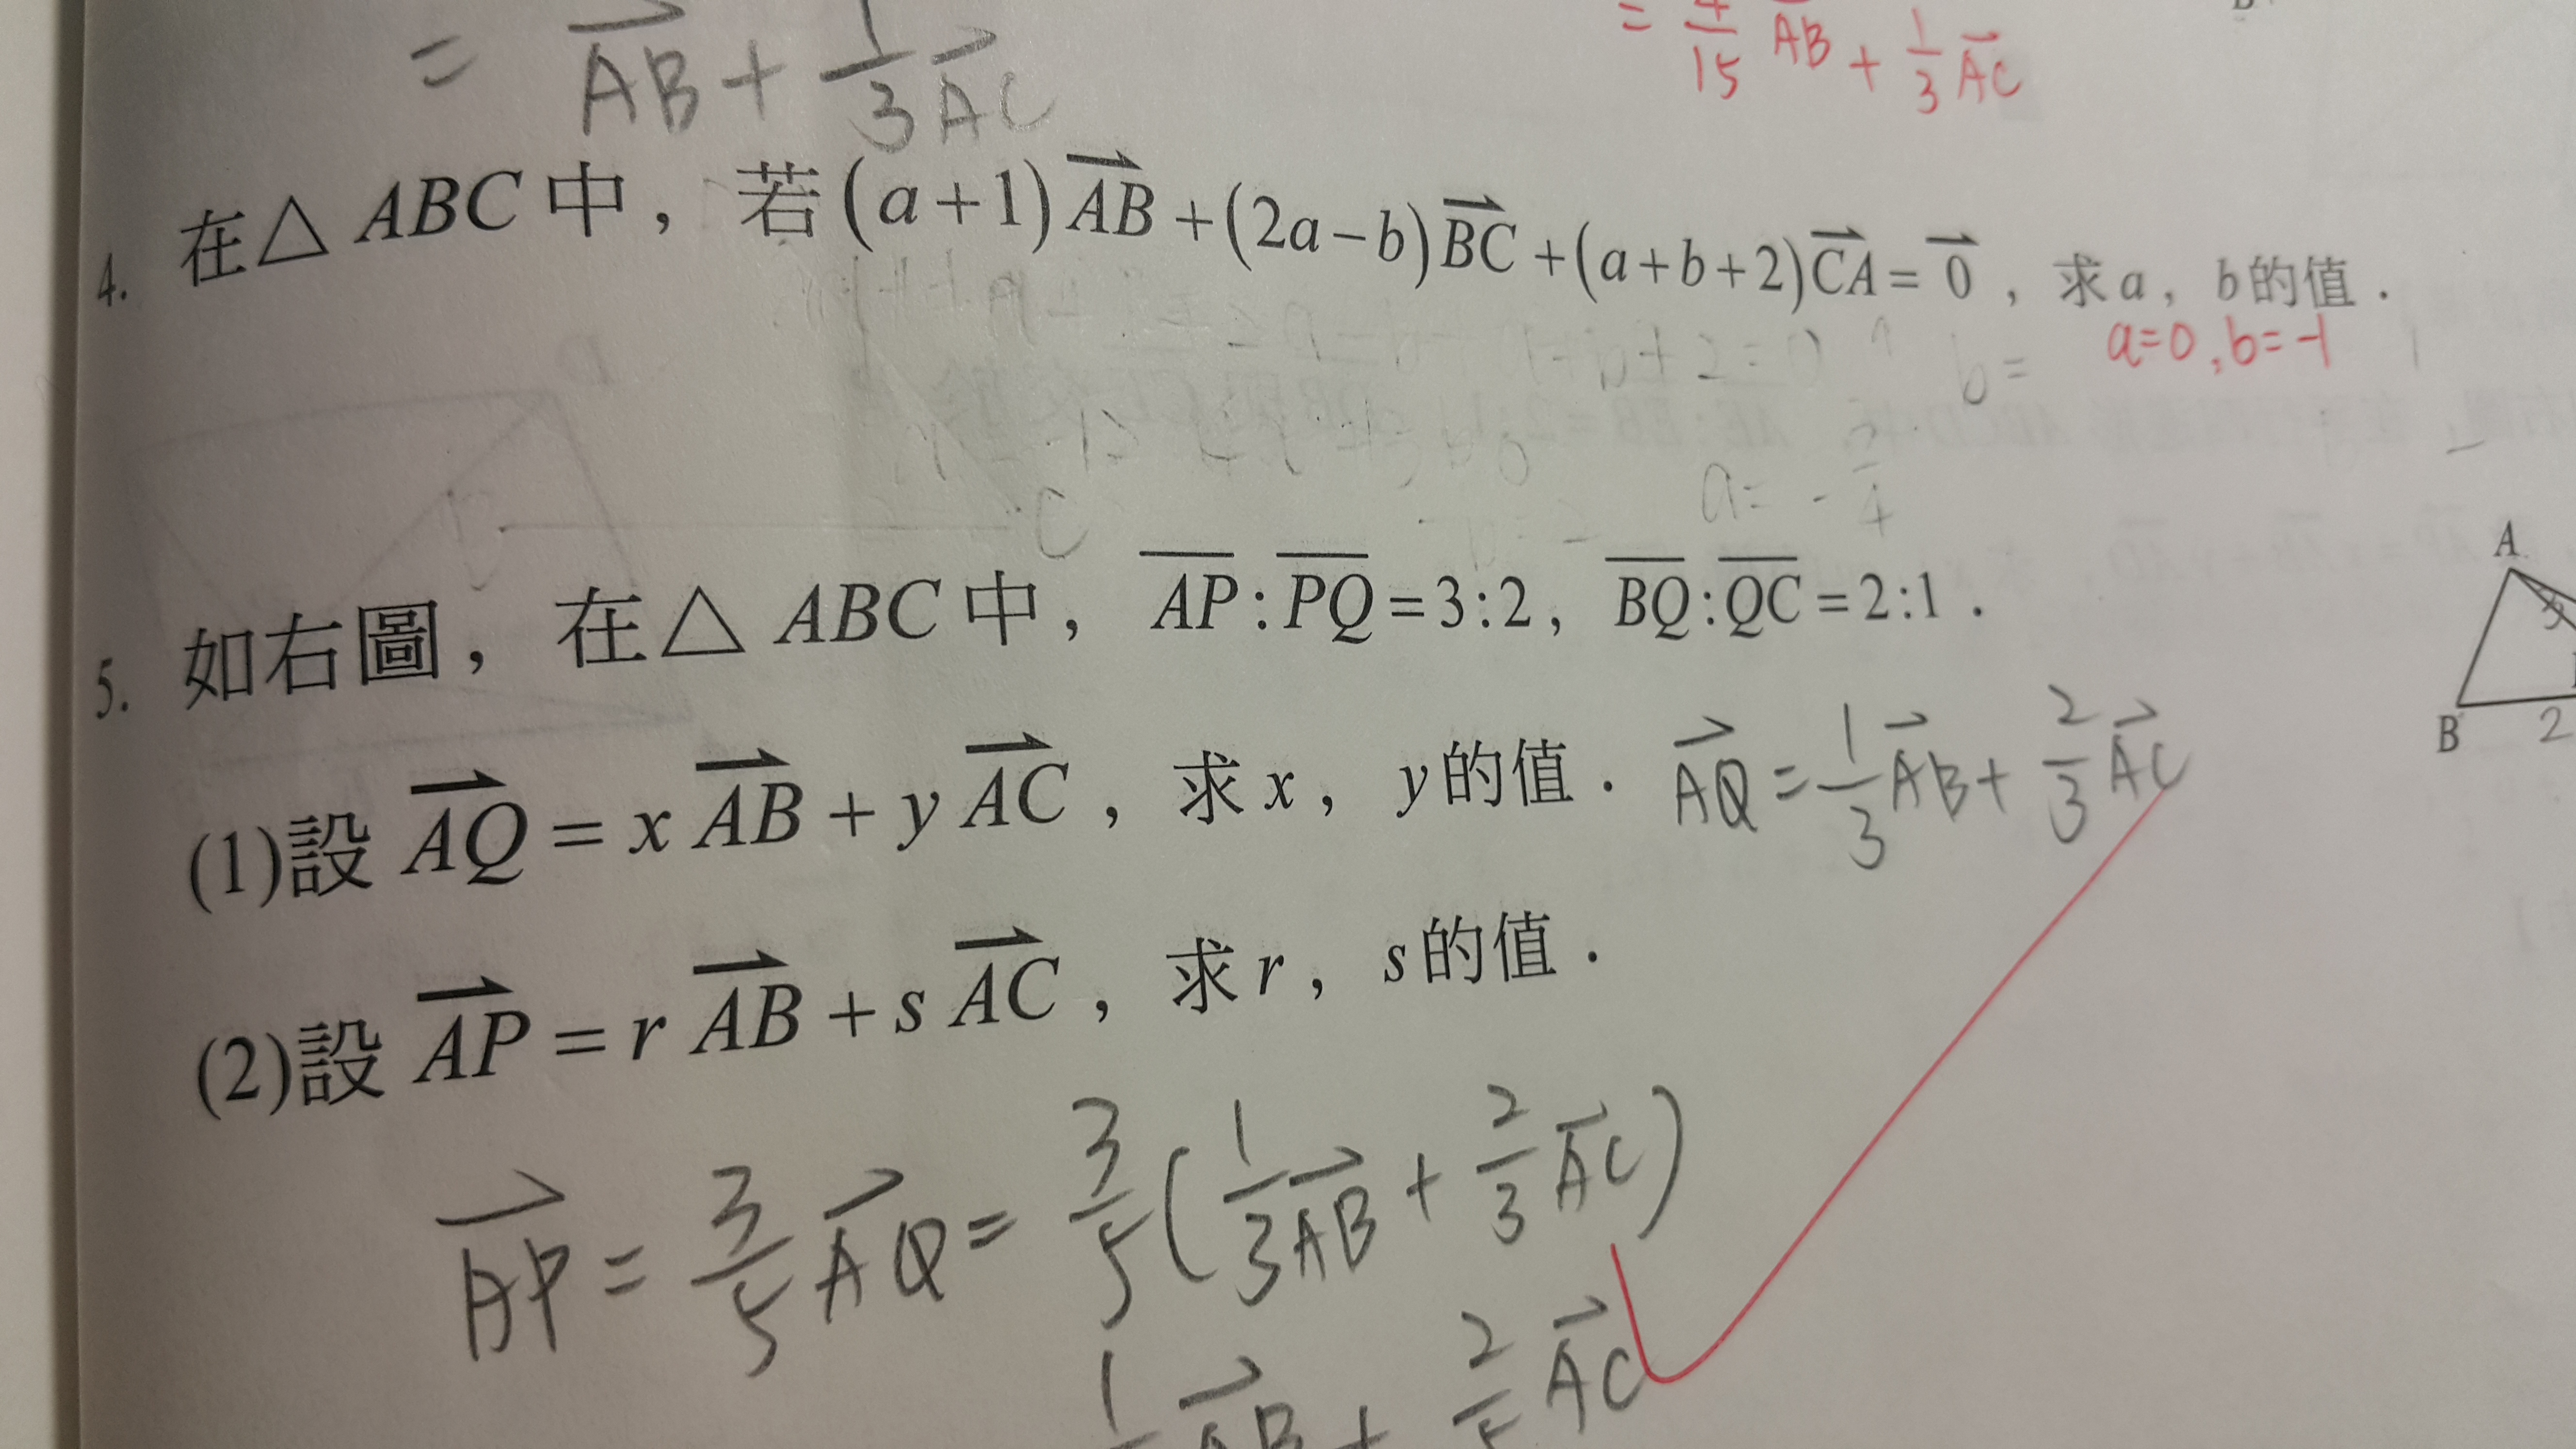 = AB + 1/3 AC
= 4/15 AB + 1/3 AC
4. 在△ABC中，若(a+1)AB+(2a-b)BC+(a+b+2)CA=0，求a，b的值．
a=0, b=-1
b=
a= -
C
5. 如右圖，在△ABC中，AP:PQ=3:2，BQ:QC=2:1．
A
B 2
(1)設AQ=xAB+yAC，求x，y的值． AQ=1/3AB+2/3AC
(2)設AP=rAB+sAC，求r，s的值．
AP=3/5AQ=3/5(1/3AB+2/3AC)
AB + 2/5 AC